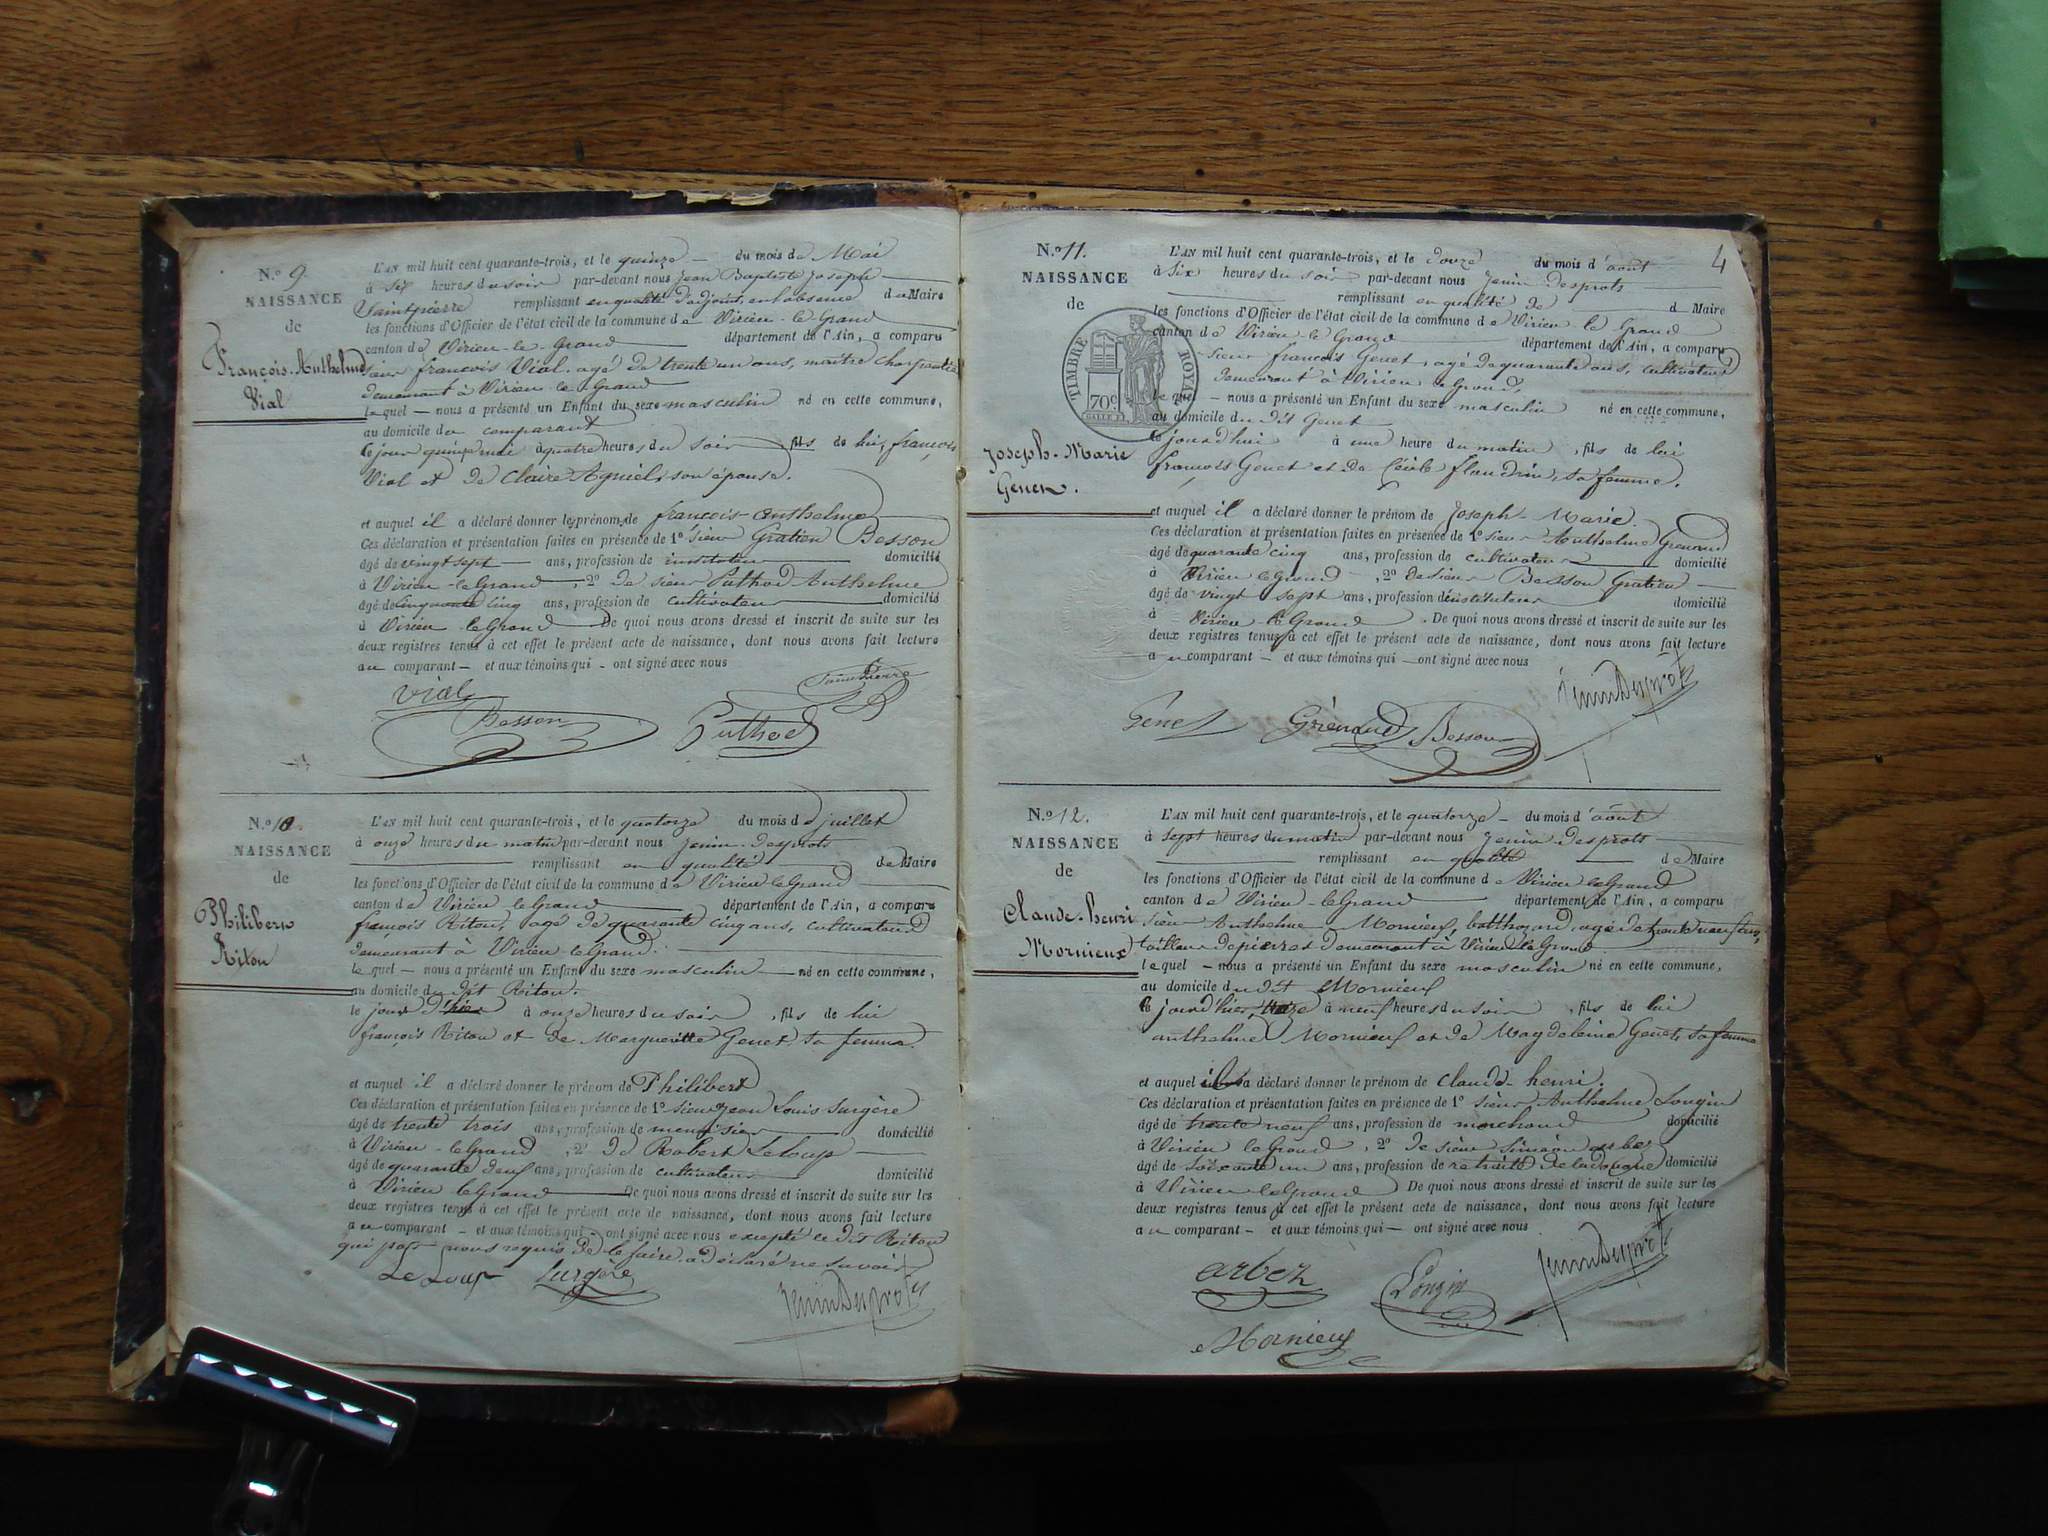 N.º 9.
NAISSANCE
de
François-Anthelme
Vial
L'AN mil huit cent quarante-trois, et le quinze du mois de Mai
à six heures du soir par-devant nous Jean Baptiste Joseph
Saintpierre remplissant en qualité d'adjoint, en l'absence du Maire
les fonctions d'Officier de l'état civil de la commune de Virieu-le-Grand
canton de Virieu-le-Grand département de l'Ain, a comparu
sieur françois Vial, agé de trente un ans, maître charpentier
demeurant à Virieu-le-Grand
lequel — nous a présenté un Enfant du sexe masculin né en cette commune,
au domicile du comparant
le jour quinze mai à quatre heures du soir, fils de lui, françois
Vial et de Claire Agniel, son épouse.
et auquel il a déclaré donner les prénoms de françois-anthelme
Ces déclaration et présentation faites en présence de 1º sieur Gratien Besson
âgé de vingt sept ans, profession de instituteur domicilié
à Virieu-le Grand, 2º de sieur Puthod Anthelme
âgé de cinquante cinq ans, profession de cultivateur domicilié
à Virieu-le Grand De quoi nous avons dressé et inscrit de suite sur les
deux registres tenus à cet effet le présent acte de naissance, dont nous avons fait lecture
au comparant — et aux témoins qui - ont signé avec nous
Vial
SaintPierre
Besson
Puthod
N.º 10.
NAISSANCE
de
Philibert
Riton
L'AN mil huit cent quarante-trois, et le quatorze du mois de juillet
à onze heures du matin par-devant nous Jenin-desprots
remplissant en qualité de Maire
les fonctions d'Officier de l'état civil de la commune de Virieu le Grand
canton de Virieu le Grand département de l'Ain, a comparu
françois Riton, agé de quarante cinq ans, cultivateur
demeurant à Virieu le Grand.
lequel — nous a présenté un Enfant du sexe masculin né en cette commune,
au domicile du dit Riton.
le jour d'hier à onze heures du soir, fils de lui
françois Riton et de Margueritte Genet sa femme.
et auquel il a déclaré donner le prénom de Philibert
Ces déclaration et présentation faites en présence de 1º sieur Jean Louis Surgère
âgé de trente trois ans, profession de menuisier domicilié
à Virieu-le Grand, 2º de Robert Leloup
âgé de quarante deux ans, profession de cultivateur domicilié
à Virieu le Grand De quoi nous avons dressé et inscrit de suite sur les
deux registres tenus à cet effet le présent acte de naissance, dont nous avons fait lecture
au comparant — et aux témoins qui - ont signé avec nous excepté le dit Riton
qui par nous requis de le faire, a déclaré ne savoir
Le Loup Surgère
JeninDesprots
4
N.º 11.
NAISSANCE
de
TIMBRE ROYAL
70c
Joseph-Marie
Genet.
L'AN mil huit cent quarante-trois, et le douze du mois d'août
à Six heures du soir par-devant nous Jenin Desprots
remplissant en qualité de d Maire
les fonctions d'Officier de l'état civil de la commune de Virieu-le Grand
canton de Virieu-le Grand département de l'Ain, a comparu
sieur françois Genet, agé de quarante ans, cultivateur
demeurant à Virieu le Grand,
lequel — nous a présenté un Enfant du sexe masculin né en cette commune,
au domicile du dit Genet
ce jourd'hui à une heure du matin, fils de lui
françois Genet et de Cécile flandrin, sa femme.
et auquel il a déclaré donner le prénom de Joseph-Marie.
Ces déclaration et présentation faites en présence de 1º sieur Anthelme Grenaud
âgé de quarante cinq ans, profession de cultivateur domicilié
à Virieu le Grand, 2º de sieur Besson Gratien
âgé de vingt sept ans, profession d'instituteur domicilié
à Virieu-le Grand. De quoi nous avons dressé et inscrit de suite sur les
deux registres tenus à cet effet le présent acte de naissance, dont nous avons fait lecture
au comparant — et aux témoins qui — ont signé avec nous
JeninDesprots
Génet Grénaud Besson
N.º 12.
NAISSANCE
de
Claude-henri
Mornieux
L'AN mil huit cent quarante-trois, et le quatorze du mois d'août
à sept heures du matin par-devant nous Jenin desprots
remplissant en qualité de Maire
les fonctions d'Officier de l'état civil de la commune de Virieu le Grand
canton de Virieu-le Grand département de l'Ain, a comparu
sieur Anthelme Mornieux, balthazard, agé de trente neuf ans,
tailleur de pierres demeurant à Virieu le Grand
lequel — nous a présenté un Enfant du sexe masculin né en cette commune,
au domicile du dit Mornieux
le jour d'hier, treize à neuf heures du soir, fils de lui
anthelme Mornieux et de Magdeleine Genet, sa femme
et auquel il a déclaré donner le prénom de Claude-henri.
Ces déclaration et présentation faites en présence de 1º sieur Anthelme Longin
âgé de trente neuf ans, profession de marchand domicilié
à Virieu le Grand, 2º de sieur Siméon arbez
âgé de soixante un ans, profession de retraité de la douane domicilié
à Virieu le Grand De quoi nous avons dressé et inscrit de suite sur les
deux registres tenus à cet effet le présent acte de naissance, dont nous avons fait lecture
au comparant — et aux témoins qui — ont signé avec nous
arbez Longin JeninDesprots
Mornieux